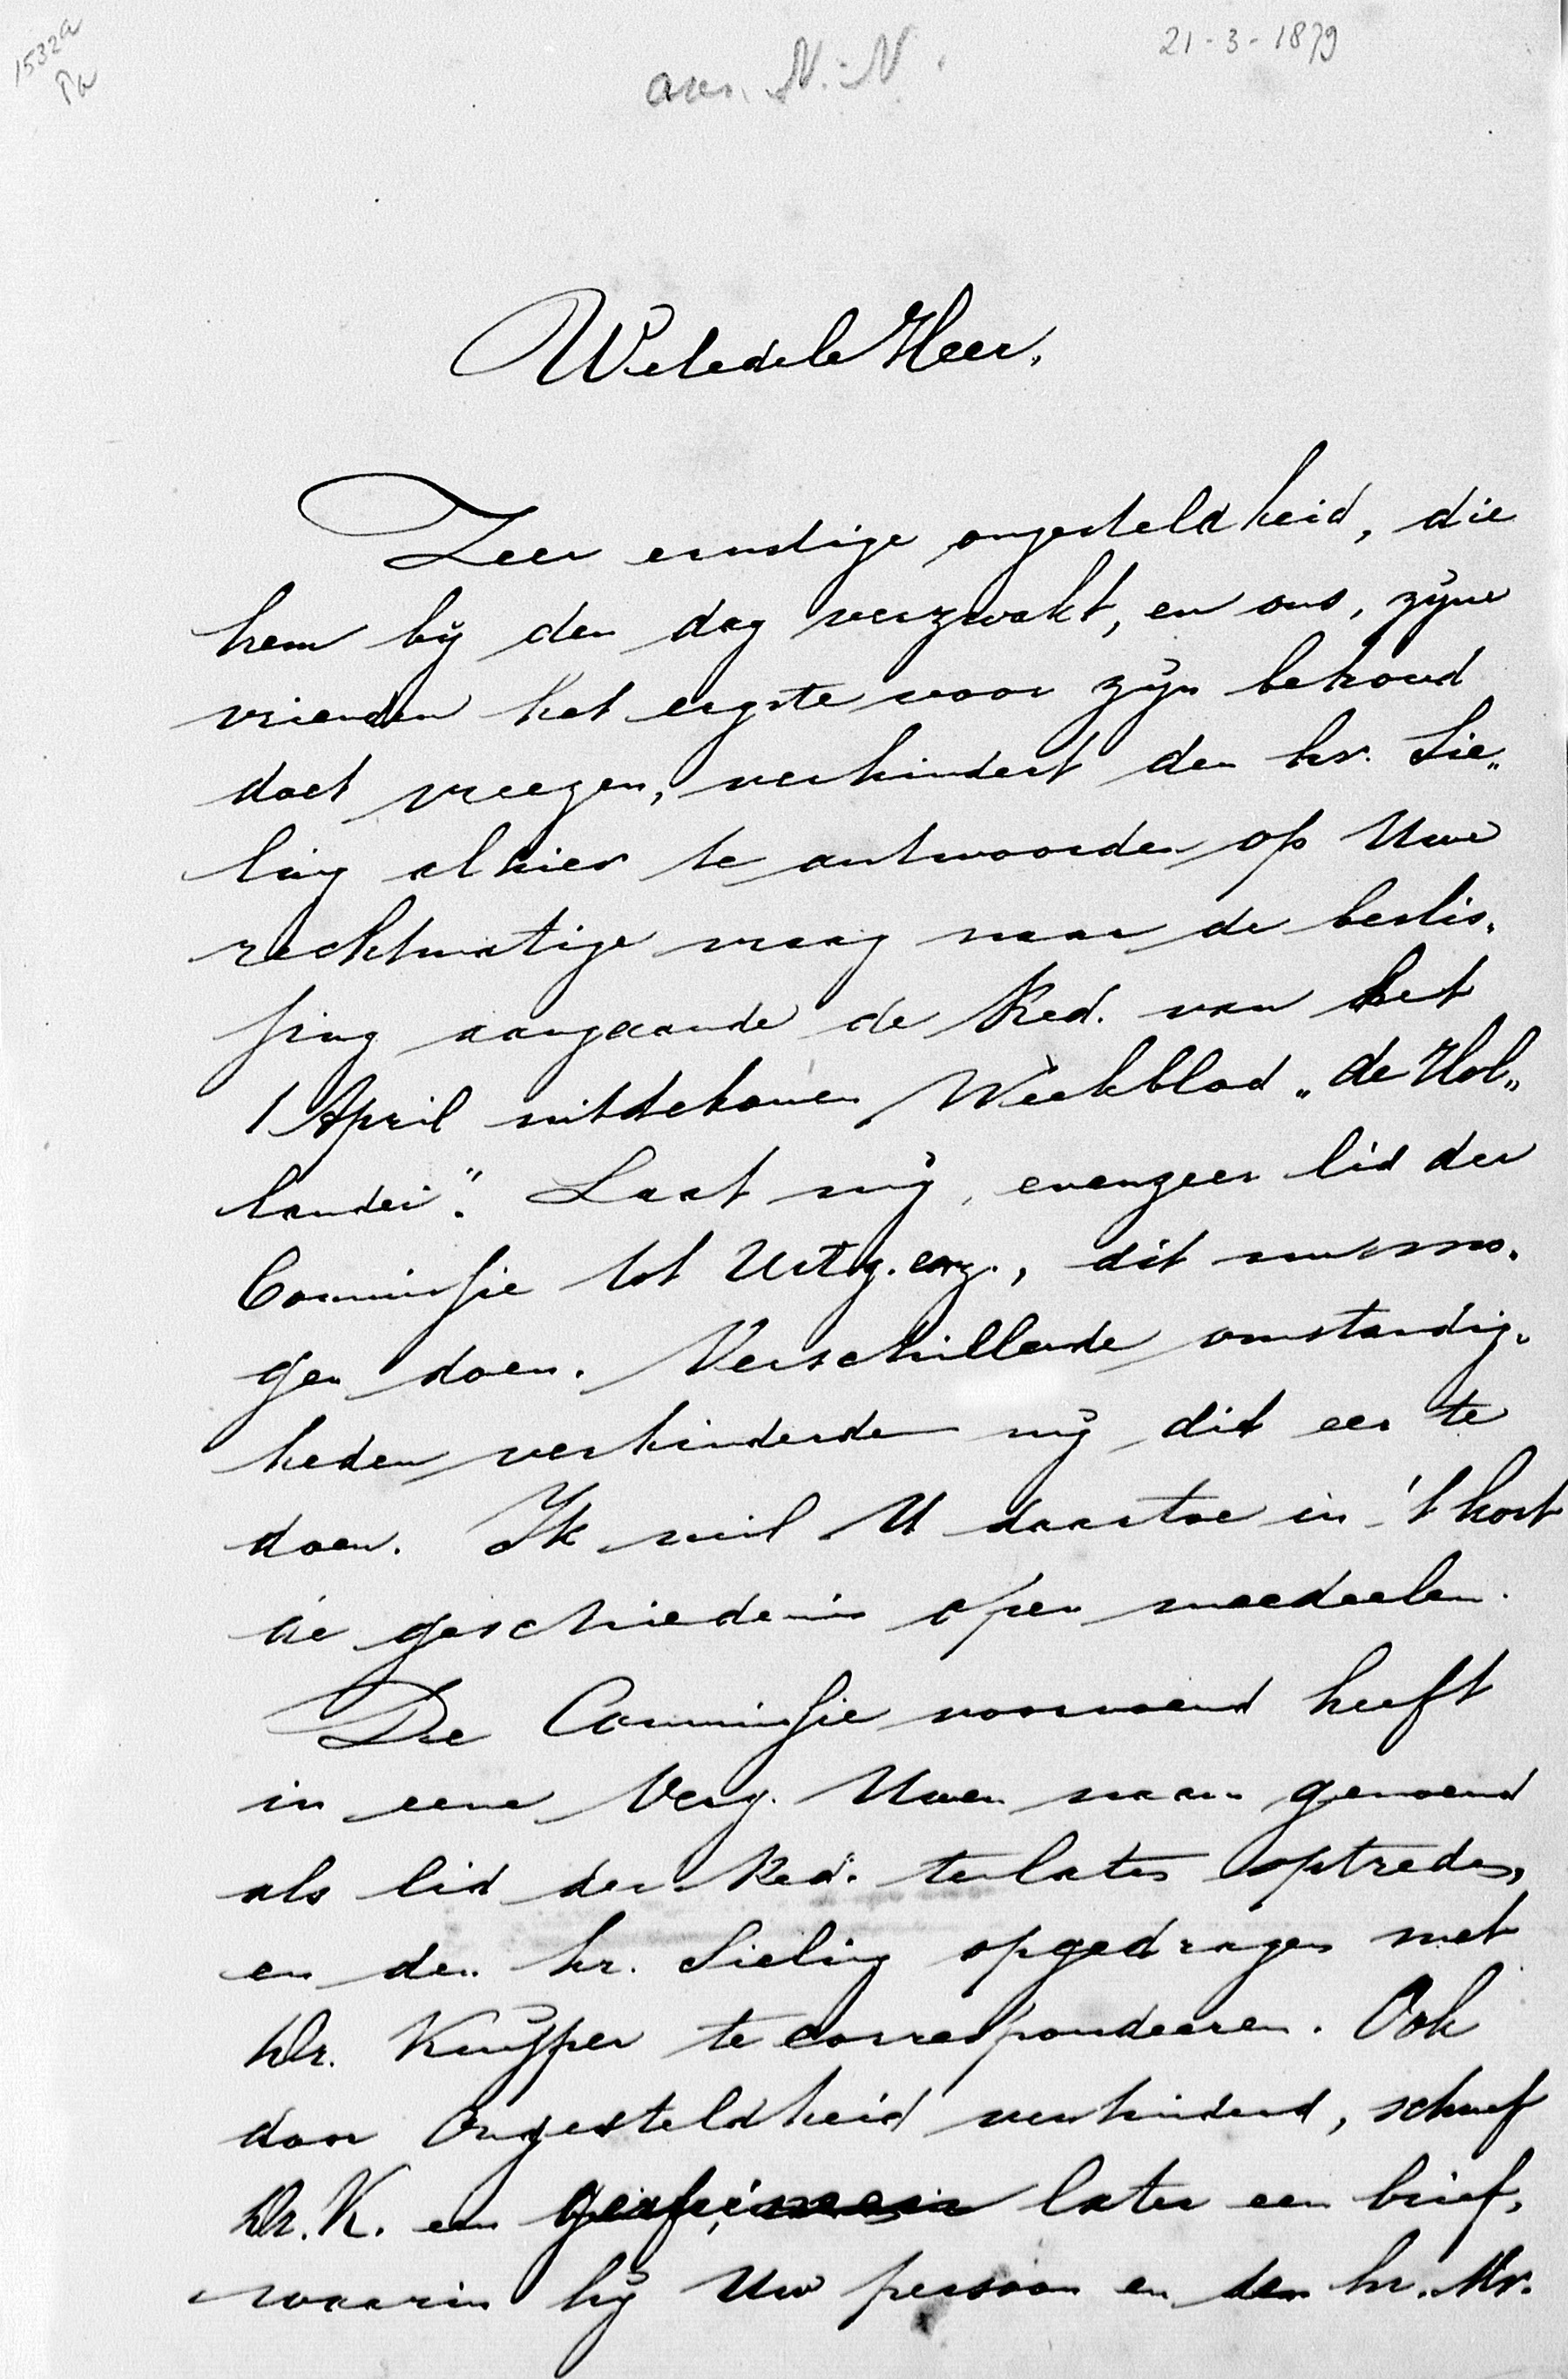 1532a
Pa
aan N.N.
21-3-1879
Weledele Heer,
Zeer ernstige ongesteldheid, die
hem bij den dag verzwakt, en ons, zijne
vrienden het ergste voor zijn behoud
doet vreezen, verhindert den hr. Sie„
ling alhier te antwoorden op Uwe
rechtmatige vraag naar de beslis„
sing aangaande de Red. van het
1 April uittekomen Weekblad „de Hol„
lander". Laat mij, evenzeer lid der
Commissie tot Uitg. enz., dit mogen
gen doen. Verschillende omstandig„
heden verhinderden mij dit eer te
doen. Ik wil U daartoe in 't kort
de geschiedenis open meedeelen.
De Commissie voornoemd heeft
in eene Verg. Uwen naam genoemd
als lid der Red. te laten optreden,
en den hr. Sieling opgedragen met
Dr. Kuijper te correspondeeren. Ook
door Ongesteldheid verhinderd, schreef
Dr. K. een later een brief,
waarin hij Uw persoon en den hr. Mr.